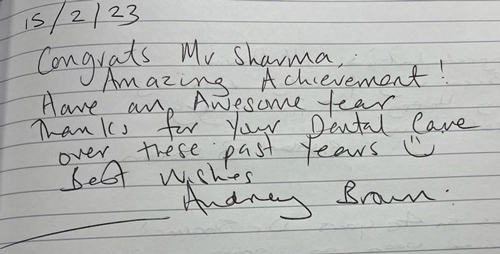 15/2/23
Congrats Mr Sharma,
Amazing Achievement!
Have an Awesome Year
Thanks for Your Dental Care
over these past Years
Best Wishes
Audrey